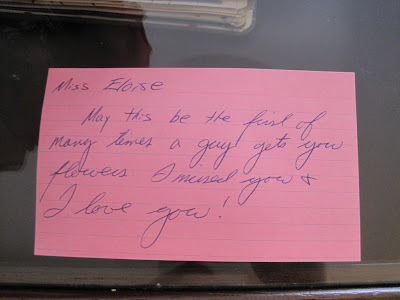 Miss Eloise
May this be the first of
many times a guy gets you
flowers I missed you +
I love you!